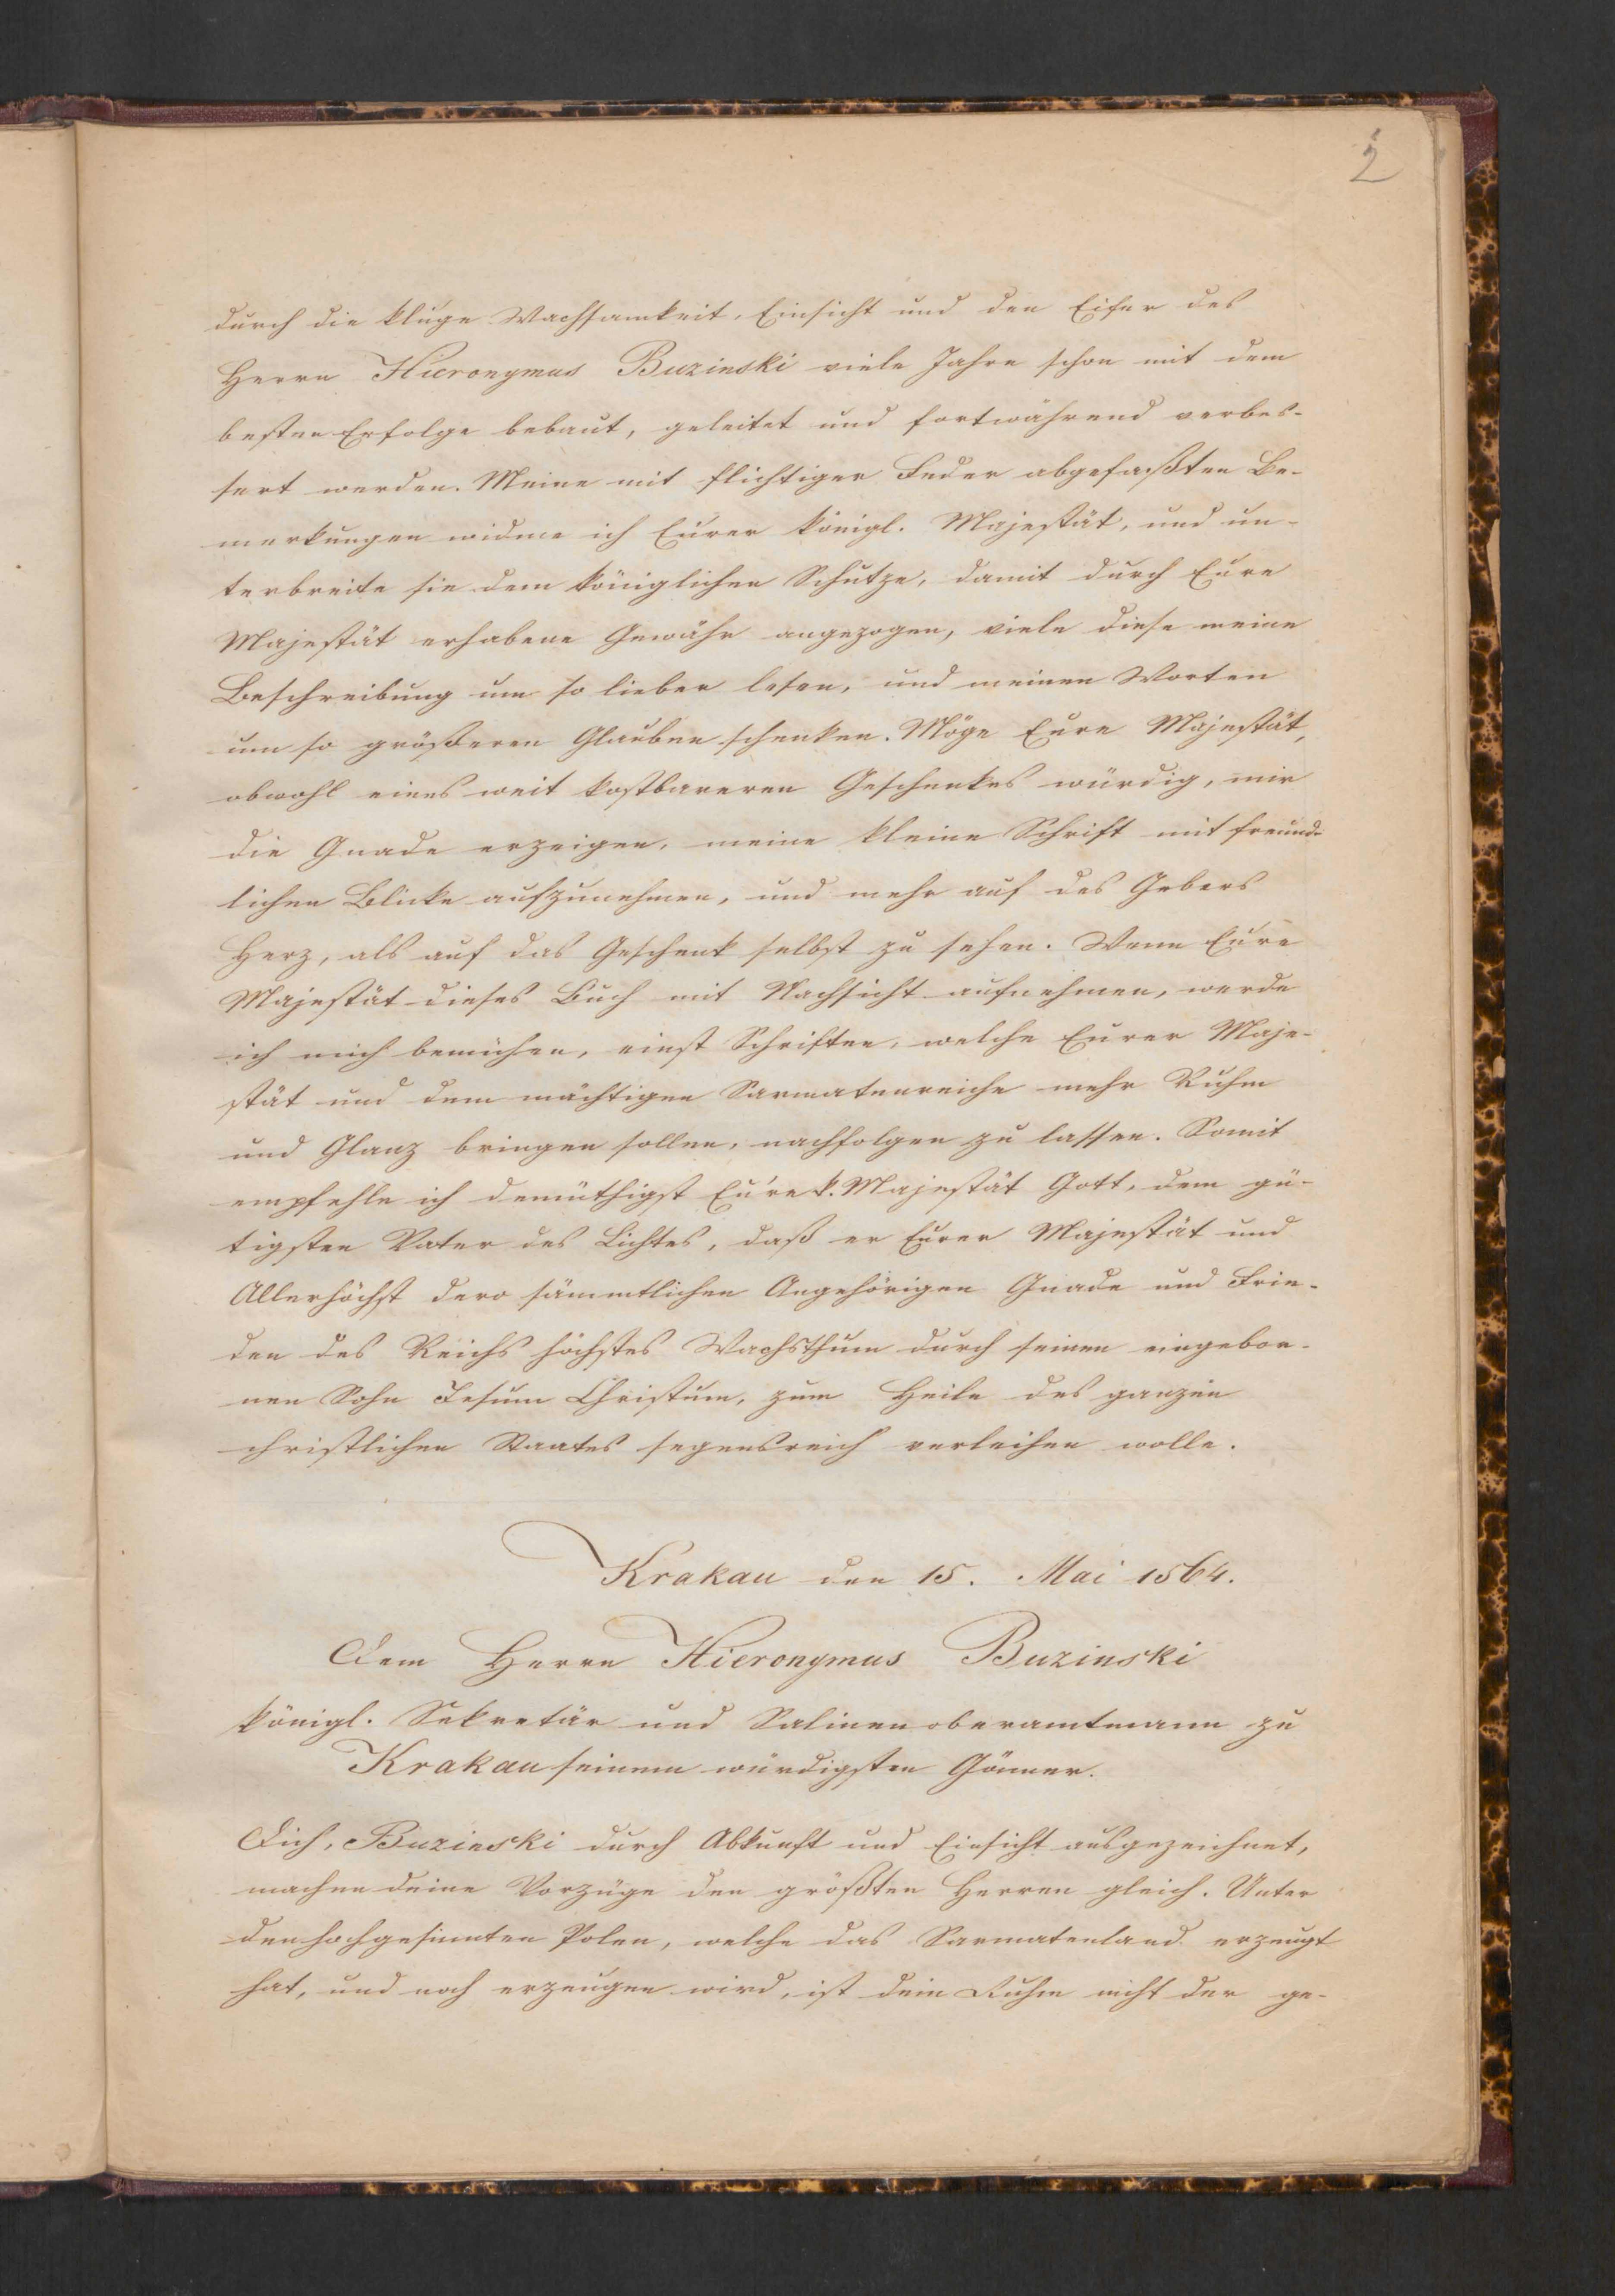 2
durch die kluge Wachsamkeit, Einsicht und den Eifer des
Herrn Hieronymus Buzinski viele Jahre schon mit dem
besten Erfolge bebaut, geleitet und fortwährend verbes-
sert werden. Meine mit flichtiger Feder abgefaßten Be-
merkungen widme ich Eurer königl. Majestät, und un-
terbreite sie dem königlichen Schutze, damit durch Eure
Majestät erhabene Gewähr angezogen, viele diese meine
Beschreibung um so lieber lesen, und meinen Worten
um so größeren Glauben schenken. Möge Eure Majestät,
obwohl eines weit kostbareren Geschenkes würdig, mir
die Gnade erzeigen, meine kleine Schrift mit freund-
lichen Blicke aufzunehmen, und mehr auf des Gebers
Herz, als auf das Geschenk selbst zu sehen. Wenn Eure
Majestät dieses Buch mit Nachsicht aufnehmen, werde
ich mich bemühen, einst Schriften, welche Eurer Maje-
stät und dem mächtigen Sarmatenreiche mehr Ruhm
und Glanz bringen sollen, nachfolgen zu lassen. Somit
empfehle ich demüthigst Eure k. Majestät Gott, dem gü-
tigsten Vater des Lichtes, daß er Eurer Majestät und
Allerhöchst dero sämmtlichen Angehörigen Gnade und Frie-
den des Reichs höchstes Wachsthum durch seinen eingebor-
nen Sohn Jesum Christum, zum Heile des ganzen
christlichen Staates segensreich verleihen wolle.
Krakau den 15. Mai 1564.
Dem Herrn Hieronymus Buzinski
königl. Sekretär und Salinenoberamtmann zu
Krakau seinem würdigsten Gönner.
Dich, Buzinski durch Abkunft und Einsicht ausgezeichnet,
machen deine Vorzüge den größten Herren gleich. Unter
den hochgesinnten Polen, welche das Sarmatenland erzeugt
hat, und noch erzeugen wird, ist dein Ruhm nicht der ge-